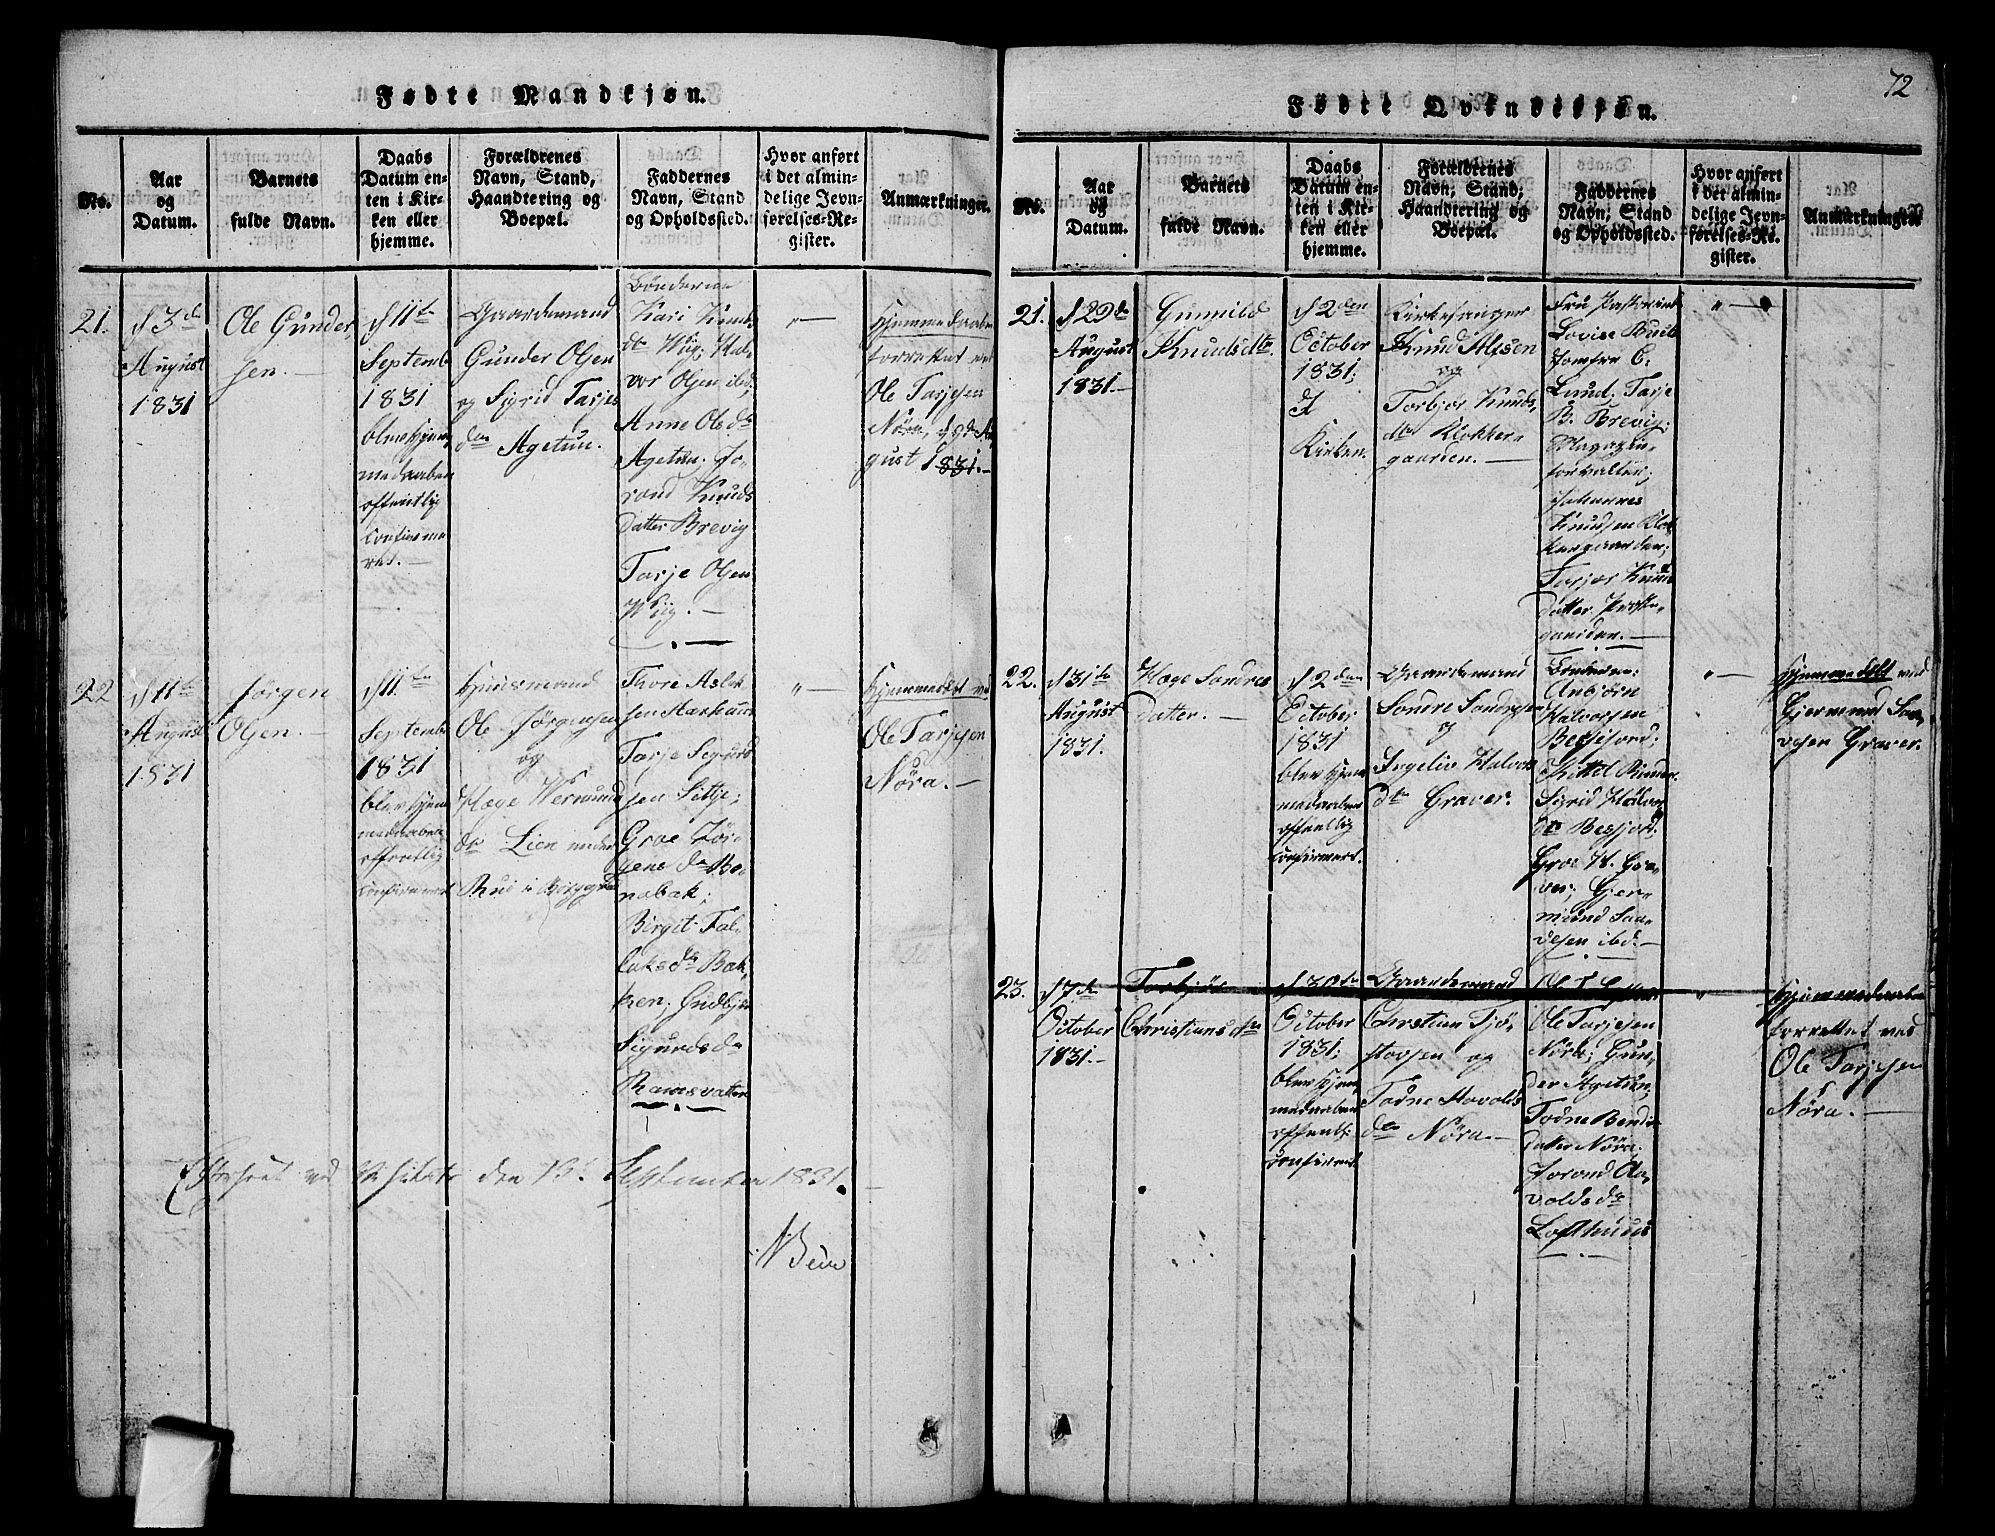 72
Fødte Mandkjøn.
No.
Aar
og
Datum.
Barnets
fulde Navn.
Daabs
Datum en-
ten i Kir-
ken eller
hjemme.
Forældrenes
Navn, Stand,
Haandtering og
Boepæl.
Faddernes
Navn, Stand
og Opholdssted.
Hvor anført
i det almin-
delige Jevn-
førelses-Re-
gister.
Anmærkninger.
21.
d 3de
August
1831
Ole Gunder,
sen.
d 11te
Septemb
1831
blev hjem
medaaben
offentlig
confirme
ret.
Gaardemand
Gunder Olsen
og Sigrid Tarjes
der Agetun.
Bönderne
Kari Knuds
dr Wiig; Hal
vor Olsen ibd;
Anne Olsdr
Agetun. Jo
rond Knuds
datter Brevig
Tarje Olsen
Wiig.
" —
Hjemmedaaben
forrettet ved
Ole Tarjesen
Nöra, d. 9de Au
gust 1831.
22
d 11te
August
1831
Jørgen
Olsen.
d 11te
Septemb
1831
blev hjem
medaaben
offentlig
confirmeret
Huusmand
Ole Jørgensen
og
Hæge Wermund
dr Lien under
Rud i
Thore Aslak
sen
Tarje Sigurd
sen
Groe Jör
gens dr Bo
nebak;
Birgit Tal
laksdr Bak
ken. Gudbjør
Sigurdsdr
Ramsvatten
" —
Hjemmedøbt ved
Ole Tarjesen
Nöra.
Efterseet ved Visitats den 13de September 1831.
Fødte Qvindekjøn.
No.
Aar
og
Datum.
Barnets
fulde Navn.
Daabs
Datum en-
ten i Kir-
ken eller
hjemme.
Forældrenes
Navn, Stand,
Haandtering og
Boepæl.
Faddernes
Navn, Stand
og Opholdssted.
Hvor anført
i det almin-
delige Jevn-
førelses-Re-
gister.
Anmærkninger
21.
d 29de
August
1831.
Gunnild
Knudsdtr
d 2den
October
1831;
I
Kirken.
Kirkesanger
Knud Alfsen
og
Torbjør Knuds,
dtr Klokker,
gaarden.
Fru Pastorinde
Lovise
Jomfru C.
Lund. Tarje
B. Brevig;
Magazin,
forvalter;
Johannes
Knudsen Klok
kergaarden;
Torjør Knud
datter Præste,
gaarden.
" —
22.
d 31te
August
1831.
Hæge Sondres
datter.
d 2den
October;
1831
blev hjem
medaaben
offentlig
confirmert.
Gaardemand
Sondre Sondresen
og
Ingeliv Halvors
dtr Graver.
Bönderne:
Anbjörn
Halvorsen
Bessefjord;
Kittel
Sigrid Halvor
dtr Besjord.
Groe H. Gra,
ver; Gjer,
mund Saa,
vesen ibd.
" —
Hjemmedøbt ved
Gjermund Saa,
vesen Graver.
23.
d 7de
October
1831.
Torbjör
Christiansdtr
d 30te
October
1831;
blev hjem
medaaben
offentl:
confirmert.
Gaardemand
Christian Tjö,
stovsen og
Torne Aavolds
dtr Nöra.
Ole Tarjesen
Nörb; Gun,
der Agetun;
Torne Bendix
datter Nöra.
Jorond Aa,
voldsdr
Lofthuus
"
Hjemmedaaben
forrettet ved
Ole Tarjesen
Nöra.